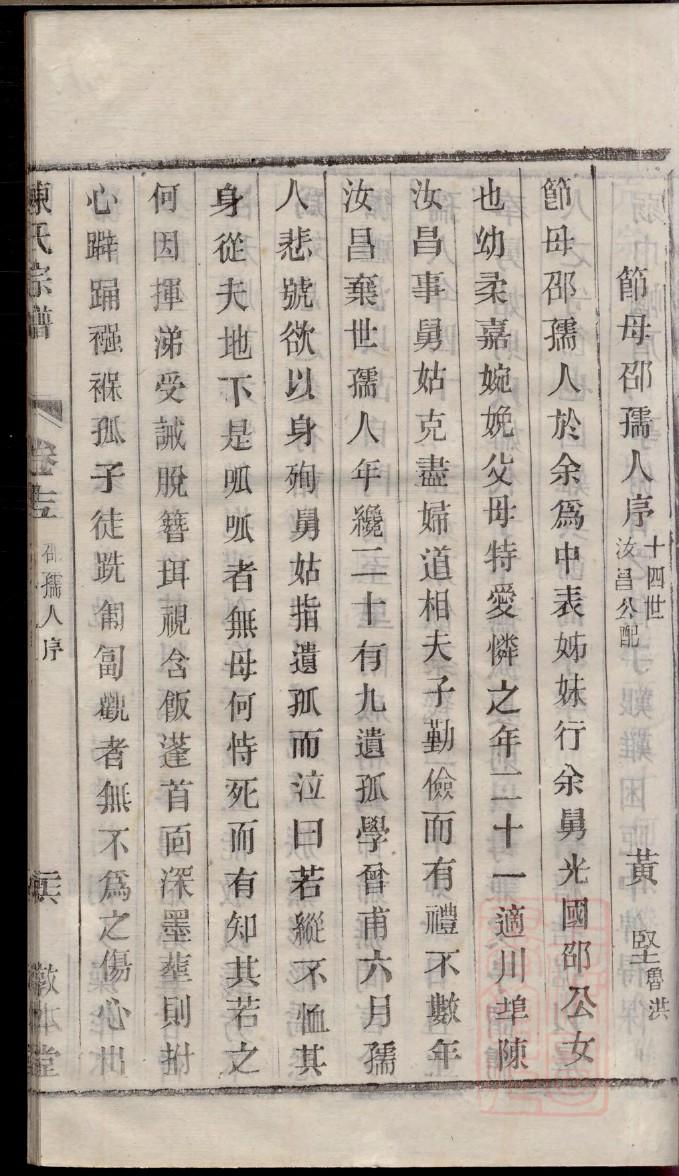 節母邵孺人序 十四世汝昌公配 黃堅魯洪
節母邵孺人於余爲中表姊妹行余舅光國邵公女
也幼柔嘉婉娩父母特愛憐之年二十一適川埠陳
汝昌事舅姑克盡婦道相夫子勤儉而有禮不數年
汝昌棄世孺人年纔二十有九遺孤學曾甫六月孺
人悲號欲以身殉舅姑指遺孤而泣曰若縱不恤其
身從夫地下是呱呱者無母何恃死而有知其若之
何因揮涕受誡脫簪珥視含飯蓬首面深墨塟則拊
心擗踊襁褓孤子徒跣匍匐觀者無不爲之傷心出
陳氏宗譜 卷 邵孺人序 敦本堂